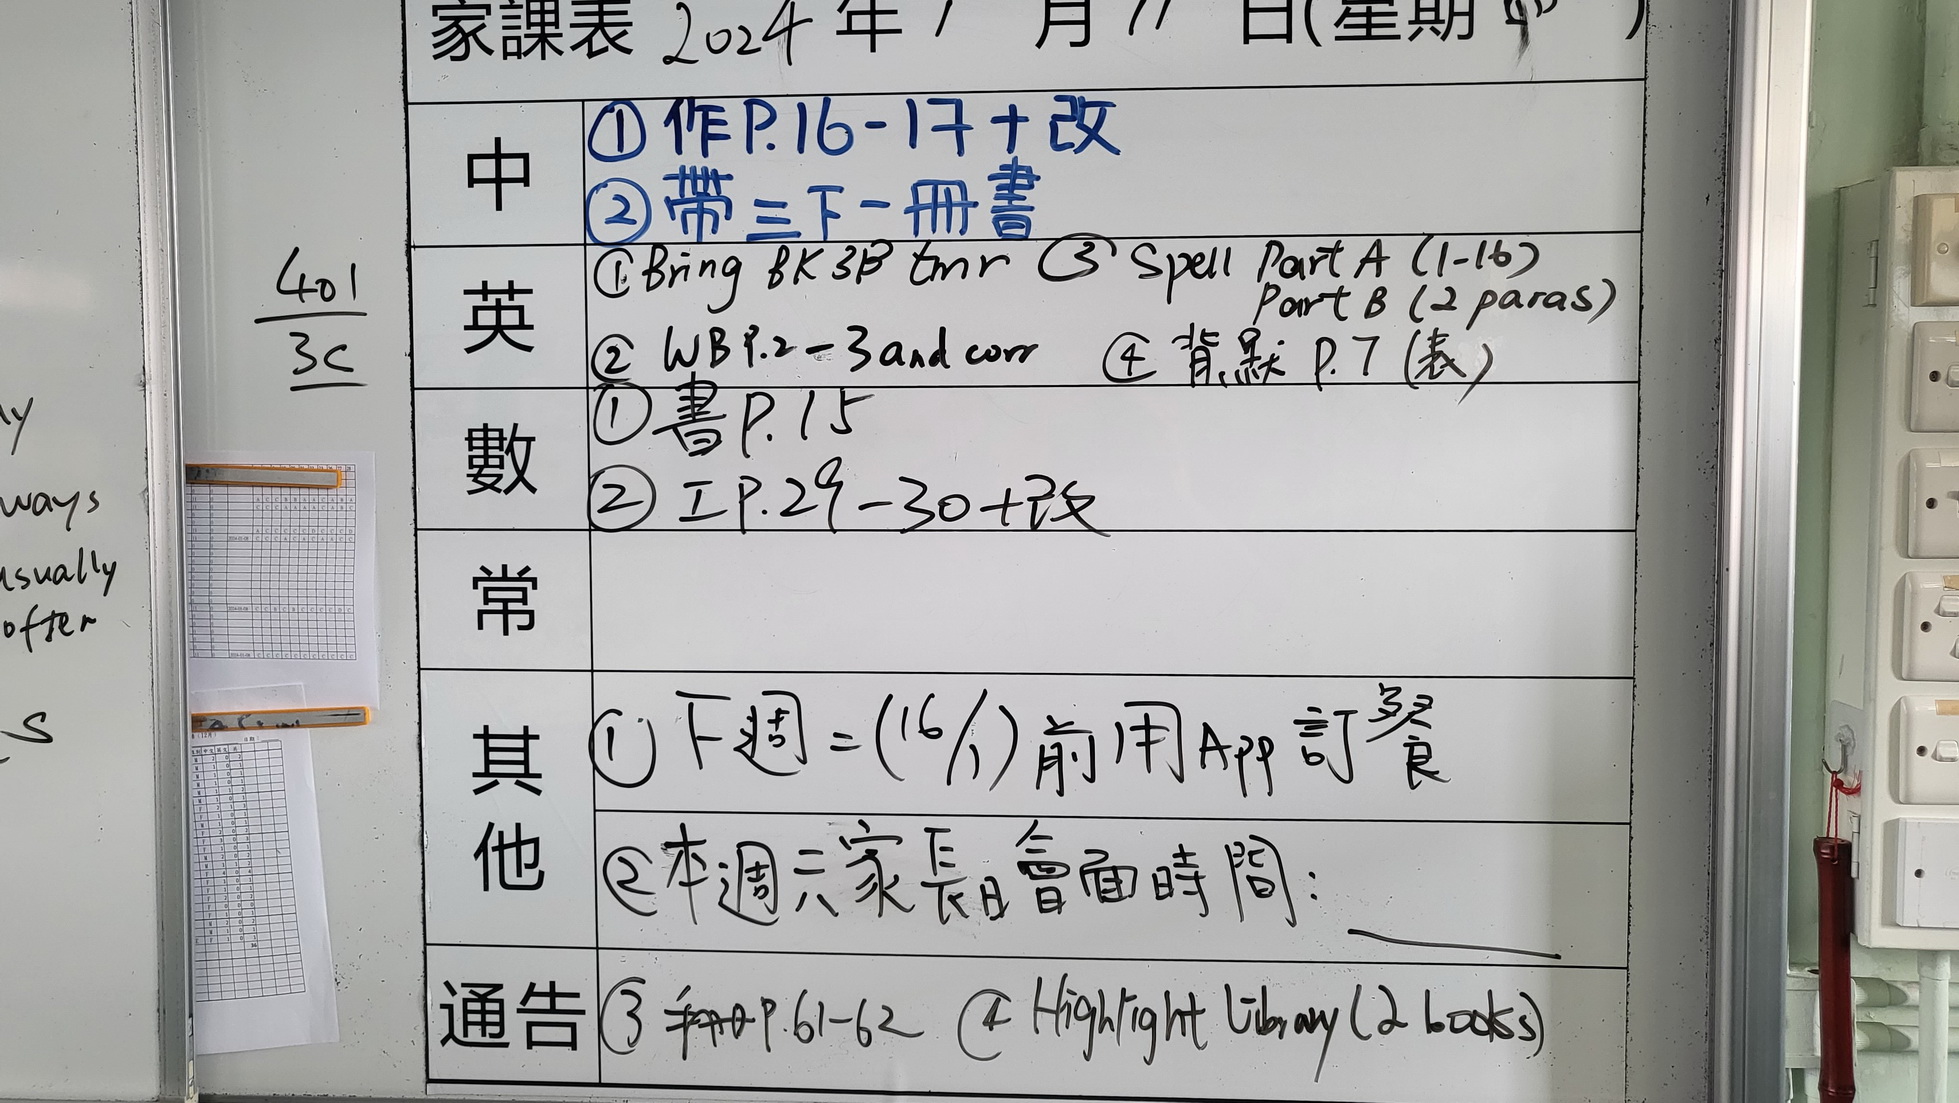 家課表 2024 年 1 月 11 日(星期 四 )
中
① 作P.16-17+改
② 帶三下一冊書
英
① Bring BK3B tmr ③ Spell Part A (1-16)
Part B (2 paras)
② WB P.2-3 and corr ④ 背默 P.7 (表)
401
3C
數
① 書P.15
② 工P.29-30+改
常
其他
① 下週二(16/1)前用App訂餐
② 本週六家長日會面時間:
通告
③ 手冊P.61-62 ④ Highlight Library (2 books)
ways
usually
often